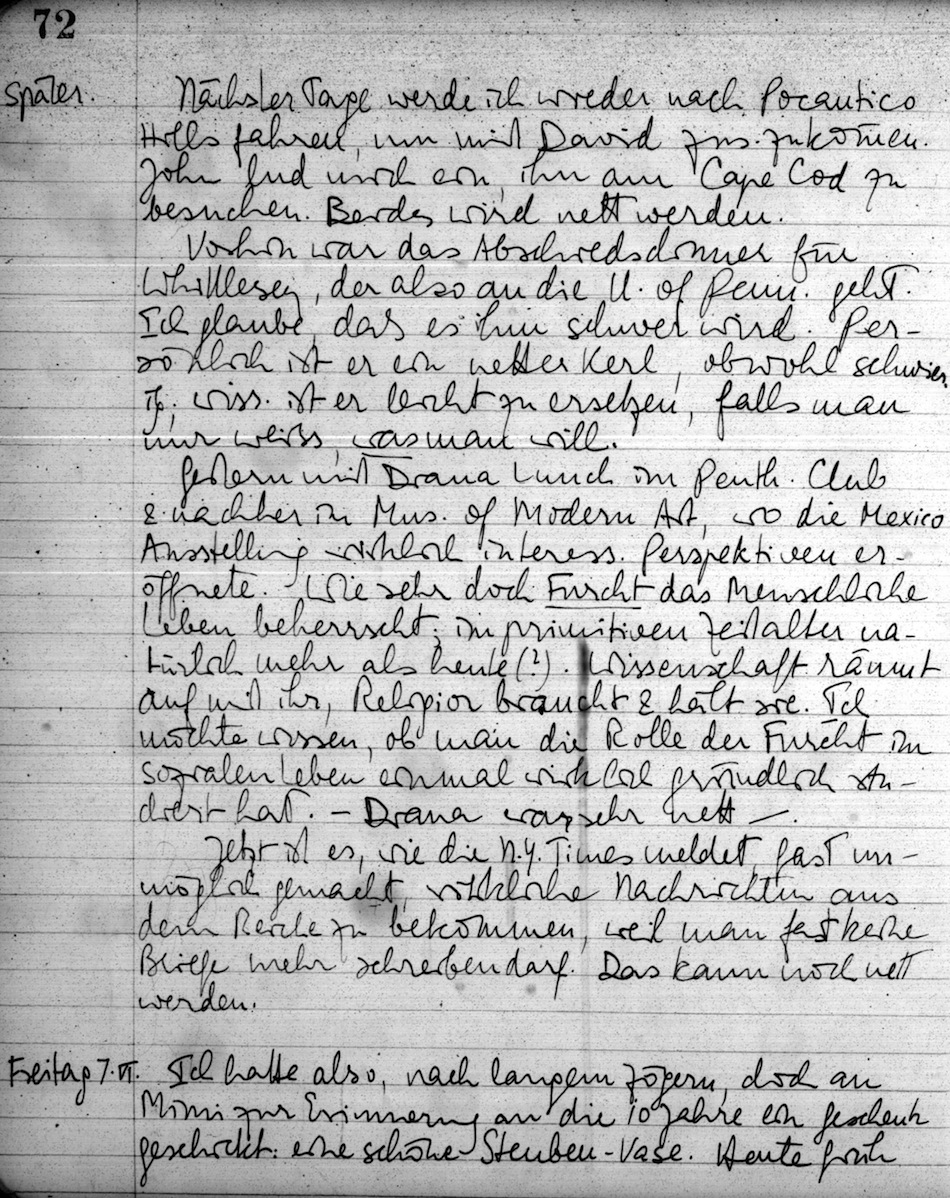 72
Später. Nächster Tage werde ich wieder nach Pocantico
Hills fahren, um mit David zus. zukom̅en.
John lud mich ein, ihn am Cape Cod zu
besuchen. Beides wird nett werden.
Vorhin war das Abschiedsdinner für
Whittlesey, der also an die U. of Penn. geht.
Ich glaube, daß es ihm schwer wird. Per-
sönlich ist er ein netter Kerl, obwohl schwier
ig; wiss. ist er leicht zu ersetzen, falls man
nur weiss, was man will.
Gestern mit Diana Lunch im Penth. Club
& nachher im Mus. of Modern Art, wo die Mexico
Ausstellung wirklich interess. Perspektiven er-
öffnete. Wie sehr doch Furcht das Menschliche
Leben beherrscht; im primitiven Zeitalter na-
türlich mehr als heute (?). Wissenschaft räumt
auf mit ihr, Religion braucht & hält sie. Ich
möchte wissen, ob man die Rolle der Furcht im
sozialen Leben einmal wirklich gründlich stu-
diert hat. – Diana war sehr nett –.
Jetzt ist es, wie die N.Y. Times meldet, fast un-
möglich gemacht, wirkliche Nachrichten aus
dem Reiche zu bekommen, weil man fast keine
Briefe mehr schreiben darf. Das kann noch nett
werden.
Freitag 7. VI. Ich hatte also, nach langem Zögern, doch an
Mimi zur Erinnerung an die 10 Jahre ein Geschenk
geschickt: eine schöne Steuben-Vase. Heute früh